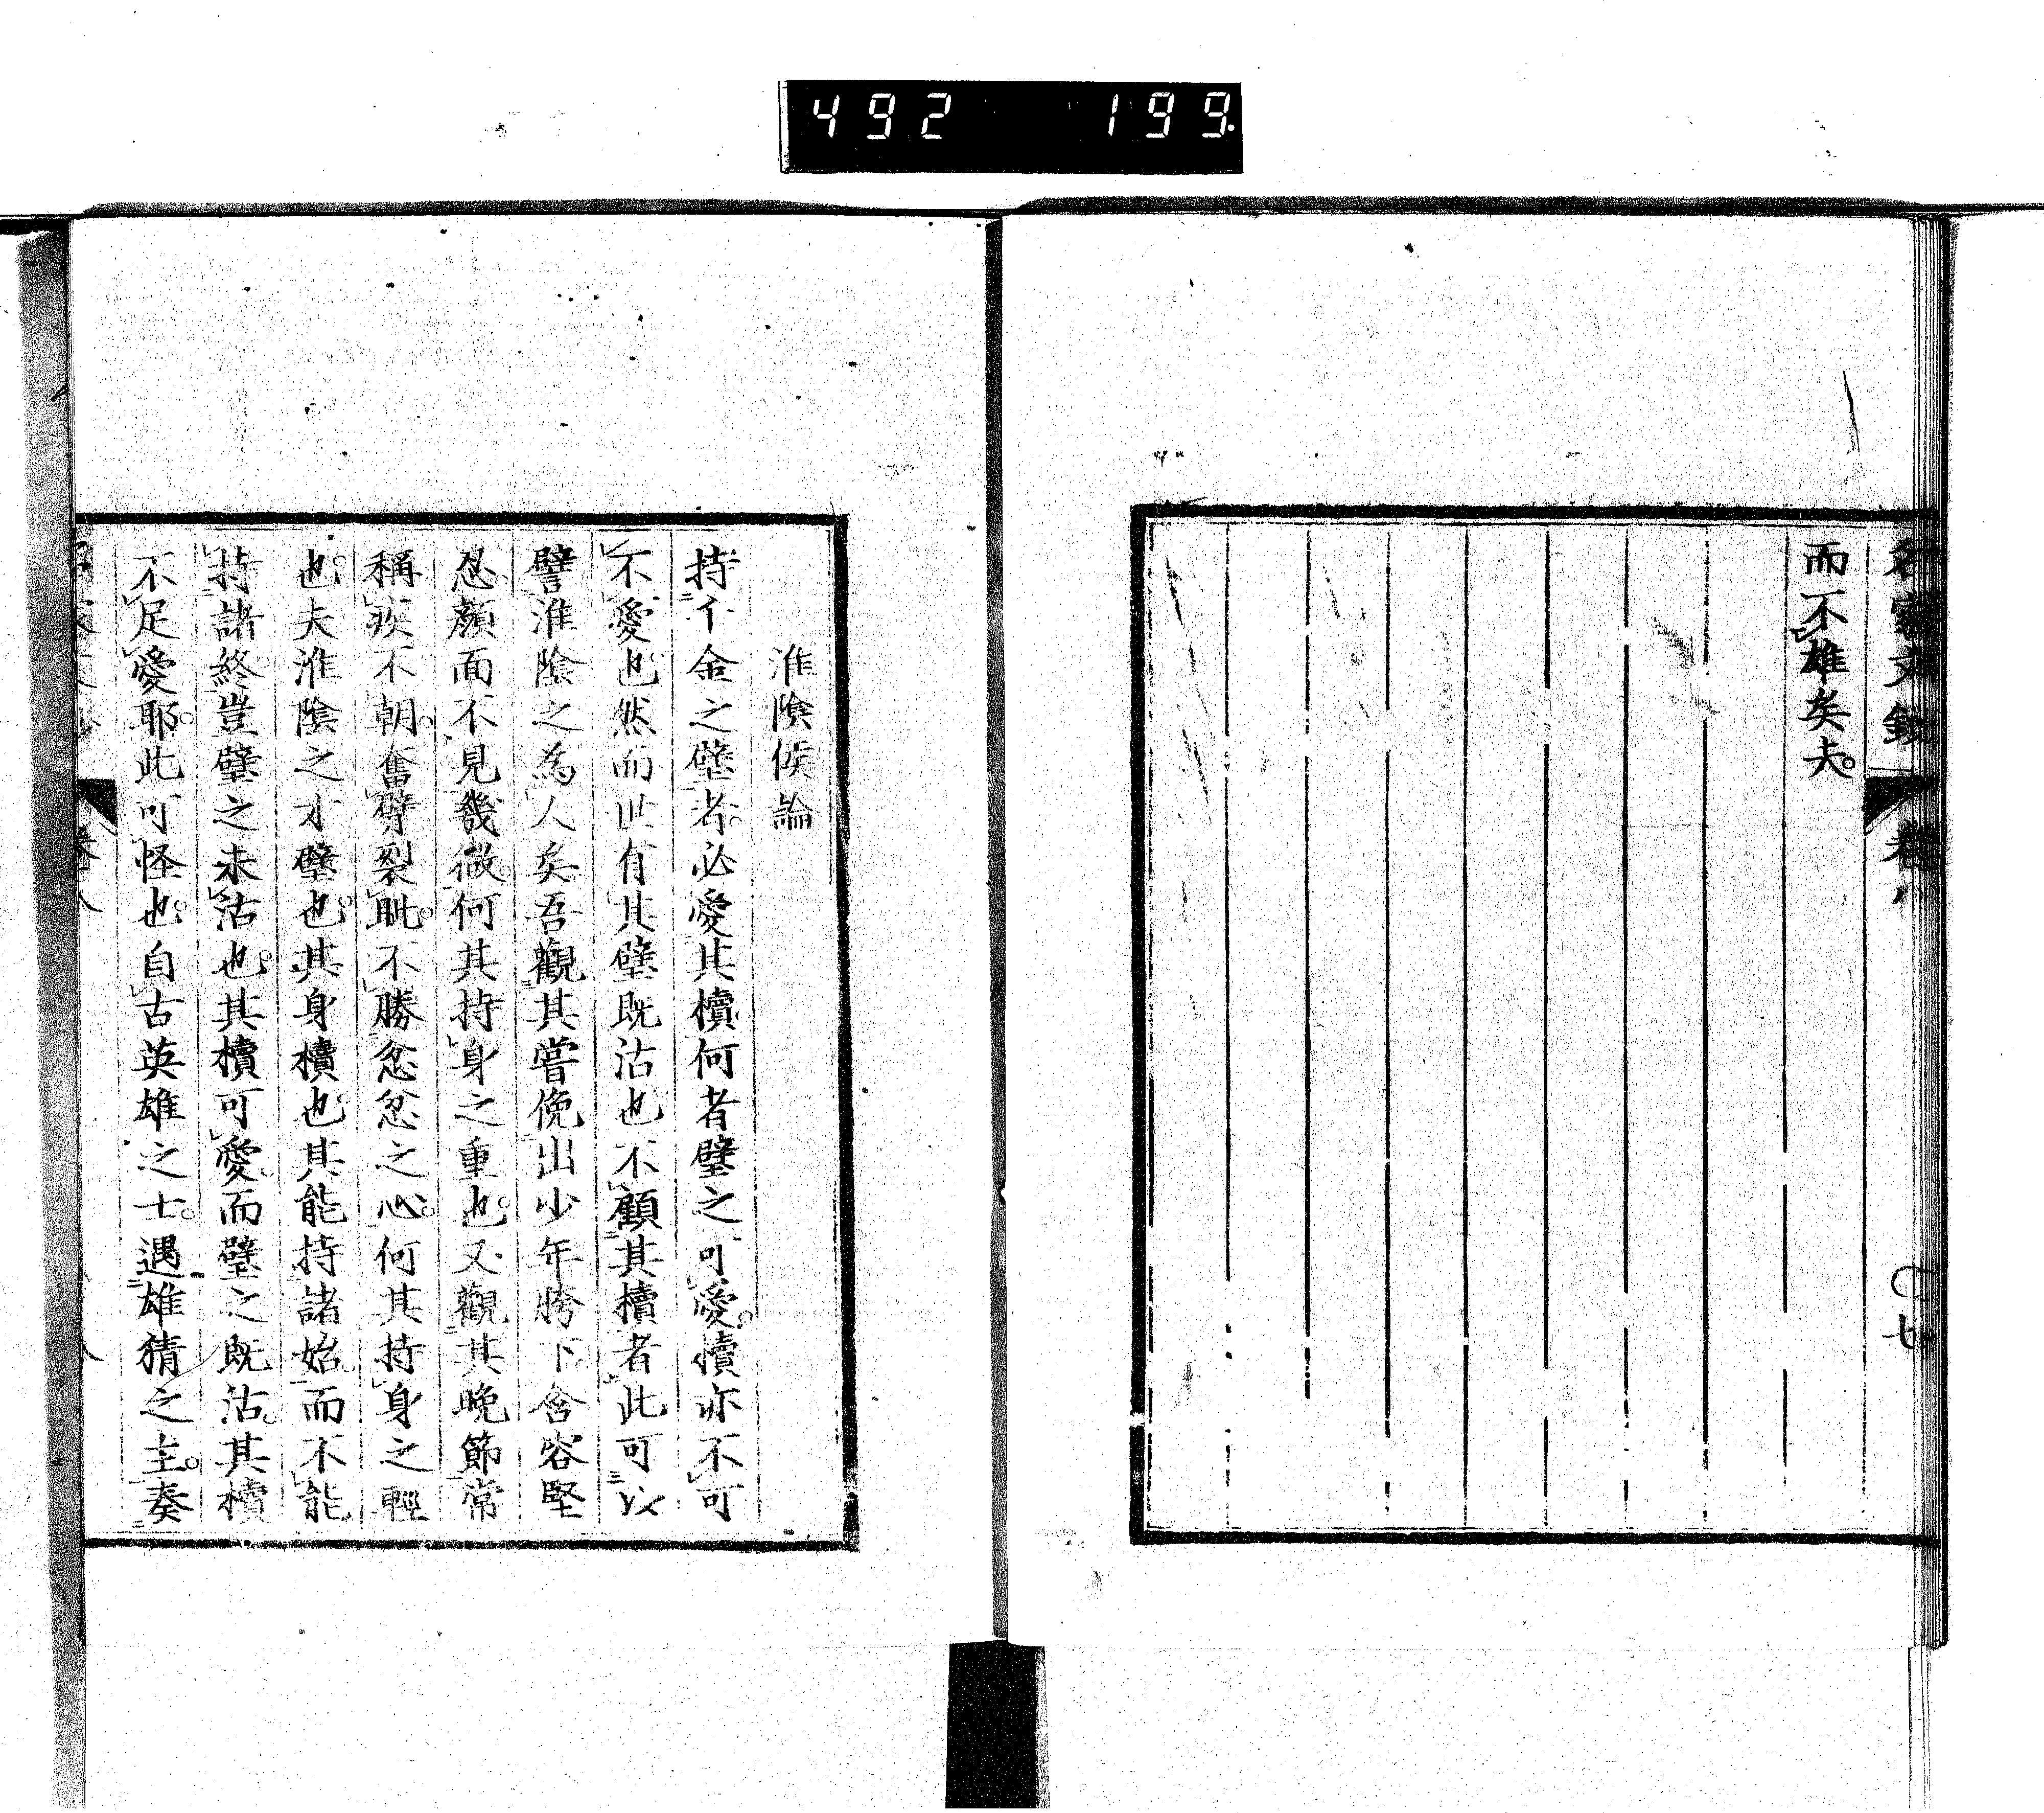 492 199
名家文鈔 卷八
而不雄矣夫
淮陰侯論
持千金之璧者必愛其櫝何者璧之可愛櫝亦不可
不愛也然而世有其璧既沽也不顧其櫝者此可以
譬淮陰之為人矣吾觀其嘗俛出少年胯下含容堅
忍顏面不見幾微何其持身之重也又觀其晚節常
稱疾不朝奮臂裂眦不勝忿忿之心何其持身之輕
也夫淮陰之才璧也其身櫝也其能持諸始而不能
持諸終豈璧之未沽也其櫝可愛而璧之既沽其櫝
不足愛耶此可怪也自古英雄之士遇雄猜之主奏